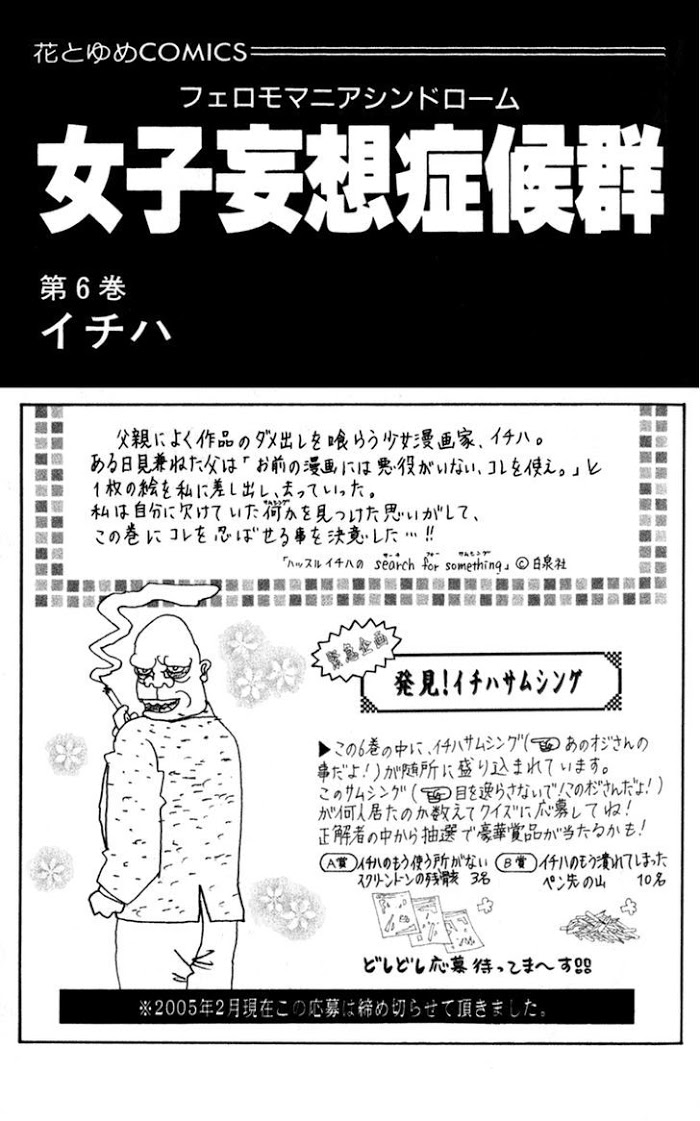 花とゆめCOMICS
フェロモマニアシンドローム
女子妄想症候群
第6巻
イチハ
父親によく作品のダメ出しを喰らう少女漫画家、イチハ。
ある日見兼ねた父は「お前の漫画には悪役がいない、コレを使え。」と
1枚の絵を私に差し出し、去っていった。
私は自分に欠けていた何かを見つけた思いがして、
この巻にコレを忍ばせる事を決意した…!!
「ハッスルイチハの search for something」©白泉社
緊急企画
発見!イチハサムシング
▶この6巻の中に、イチハサムシング(☜あのオジさんの
事だよ!)が随所に盛り込まれています。
このサムシング(☜目を逸らさないで!このオジさんだよ!)
が何人居たのか数えてクイズに応募してね!
正解者の中から抽選で豪華賞品が当たるかも!
A賞 イチハのもう使う所がない
スクリーントーンの残骸 3名
B賞 イチハのもう潰れてしまった
ペン先の山 10名
どしどし応募待ってま〜す!!
※2005年2月現在この応募は締め切らせて頂きました。